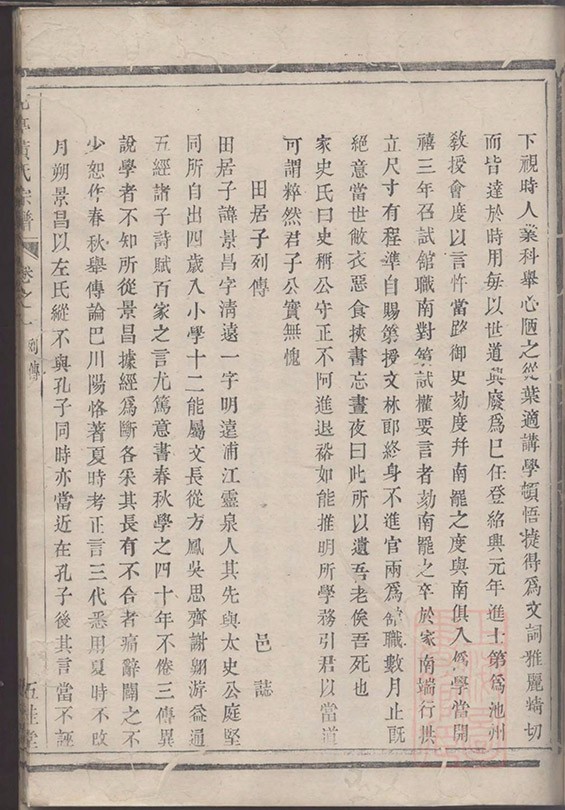 下視時人業科舉心陋之從葉適講學頓悟捷得為文詞雅麗精切
而皆達於時用每以世道興廢爲已任登紹興元年進士第爲池州
敎授會度以言忤當路御史劾度幷南罷之度與南俱入僞學當開
禧三年召試舘職南對策試權要言者劾南罷之卒於家南端行拱
立尺寸有程準自賜第授文林郎終身不進官兩爲舘職數月止旣
絕意當世敝衣惡食挾書忘晝夜曰此所以遺吾老俟吾死也
家史氏曰史稱公守正不阿進退裕如能推明所學務引君以當道
可謂粹然君子公實無愧
田居子列傳
邑誌
田居子諱景昌字清遠一字明遠浦江靈泉人其先與太史公庭堅
同所自出四歲入小學十二能屬文長從方鳳吳思齊謝翺游益通
五經諸子詩賦百家之言尤篤意書春秋學之四十年不倦三傳異
說學者不知所從景昌據經爲斷各采其長有不合者痛辭闢之不
少恕作春秋舉傳論巴川陽恪著夏時考正言三代悉用夏時不改
月朔景昌以左氏縱不與孔子同時亦當近在孔子後其言當不誣
黃氏宗譜
卷之一
列傳
五桂堂